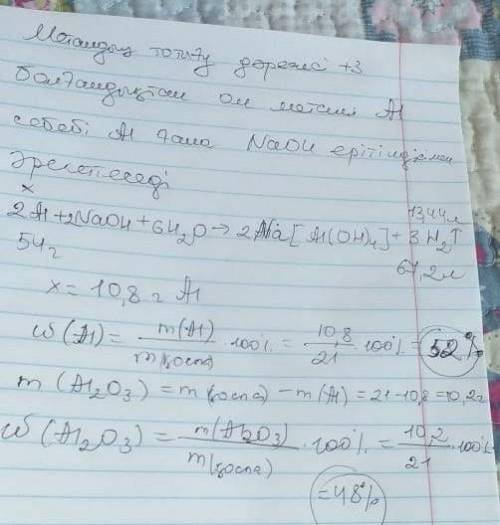 Металдың тотығу дәрежесі +3
болғандықтан ол металл Al
себебі Al ғана NaOH ерітіндісімен
әрекеттеседі
x 13,44л
2Al+2NaOH+6H₂O→2Na[Al(OH)₄]+3H₂↑
54г 67,2л
x=10,8г Al
ω(Al)= m(Al)/m(қоспа) ·100%= 10,8/21 ·100%=52%
m(Al₂O₃)=m(қоспа)-m(Al)=21-10,8=10,2г
ω(Al₂O₃)= m(Al₂O₃)/m(қоспа) ·100%= 10,2/21 ·100%
=48%